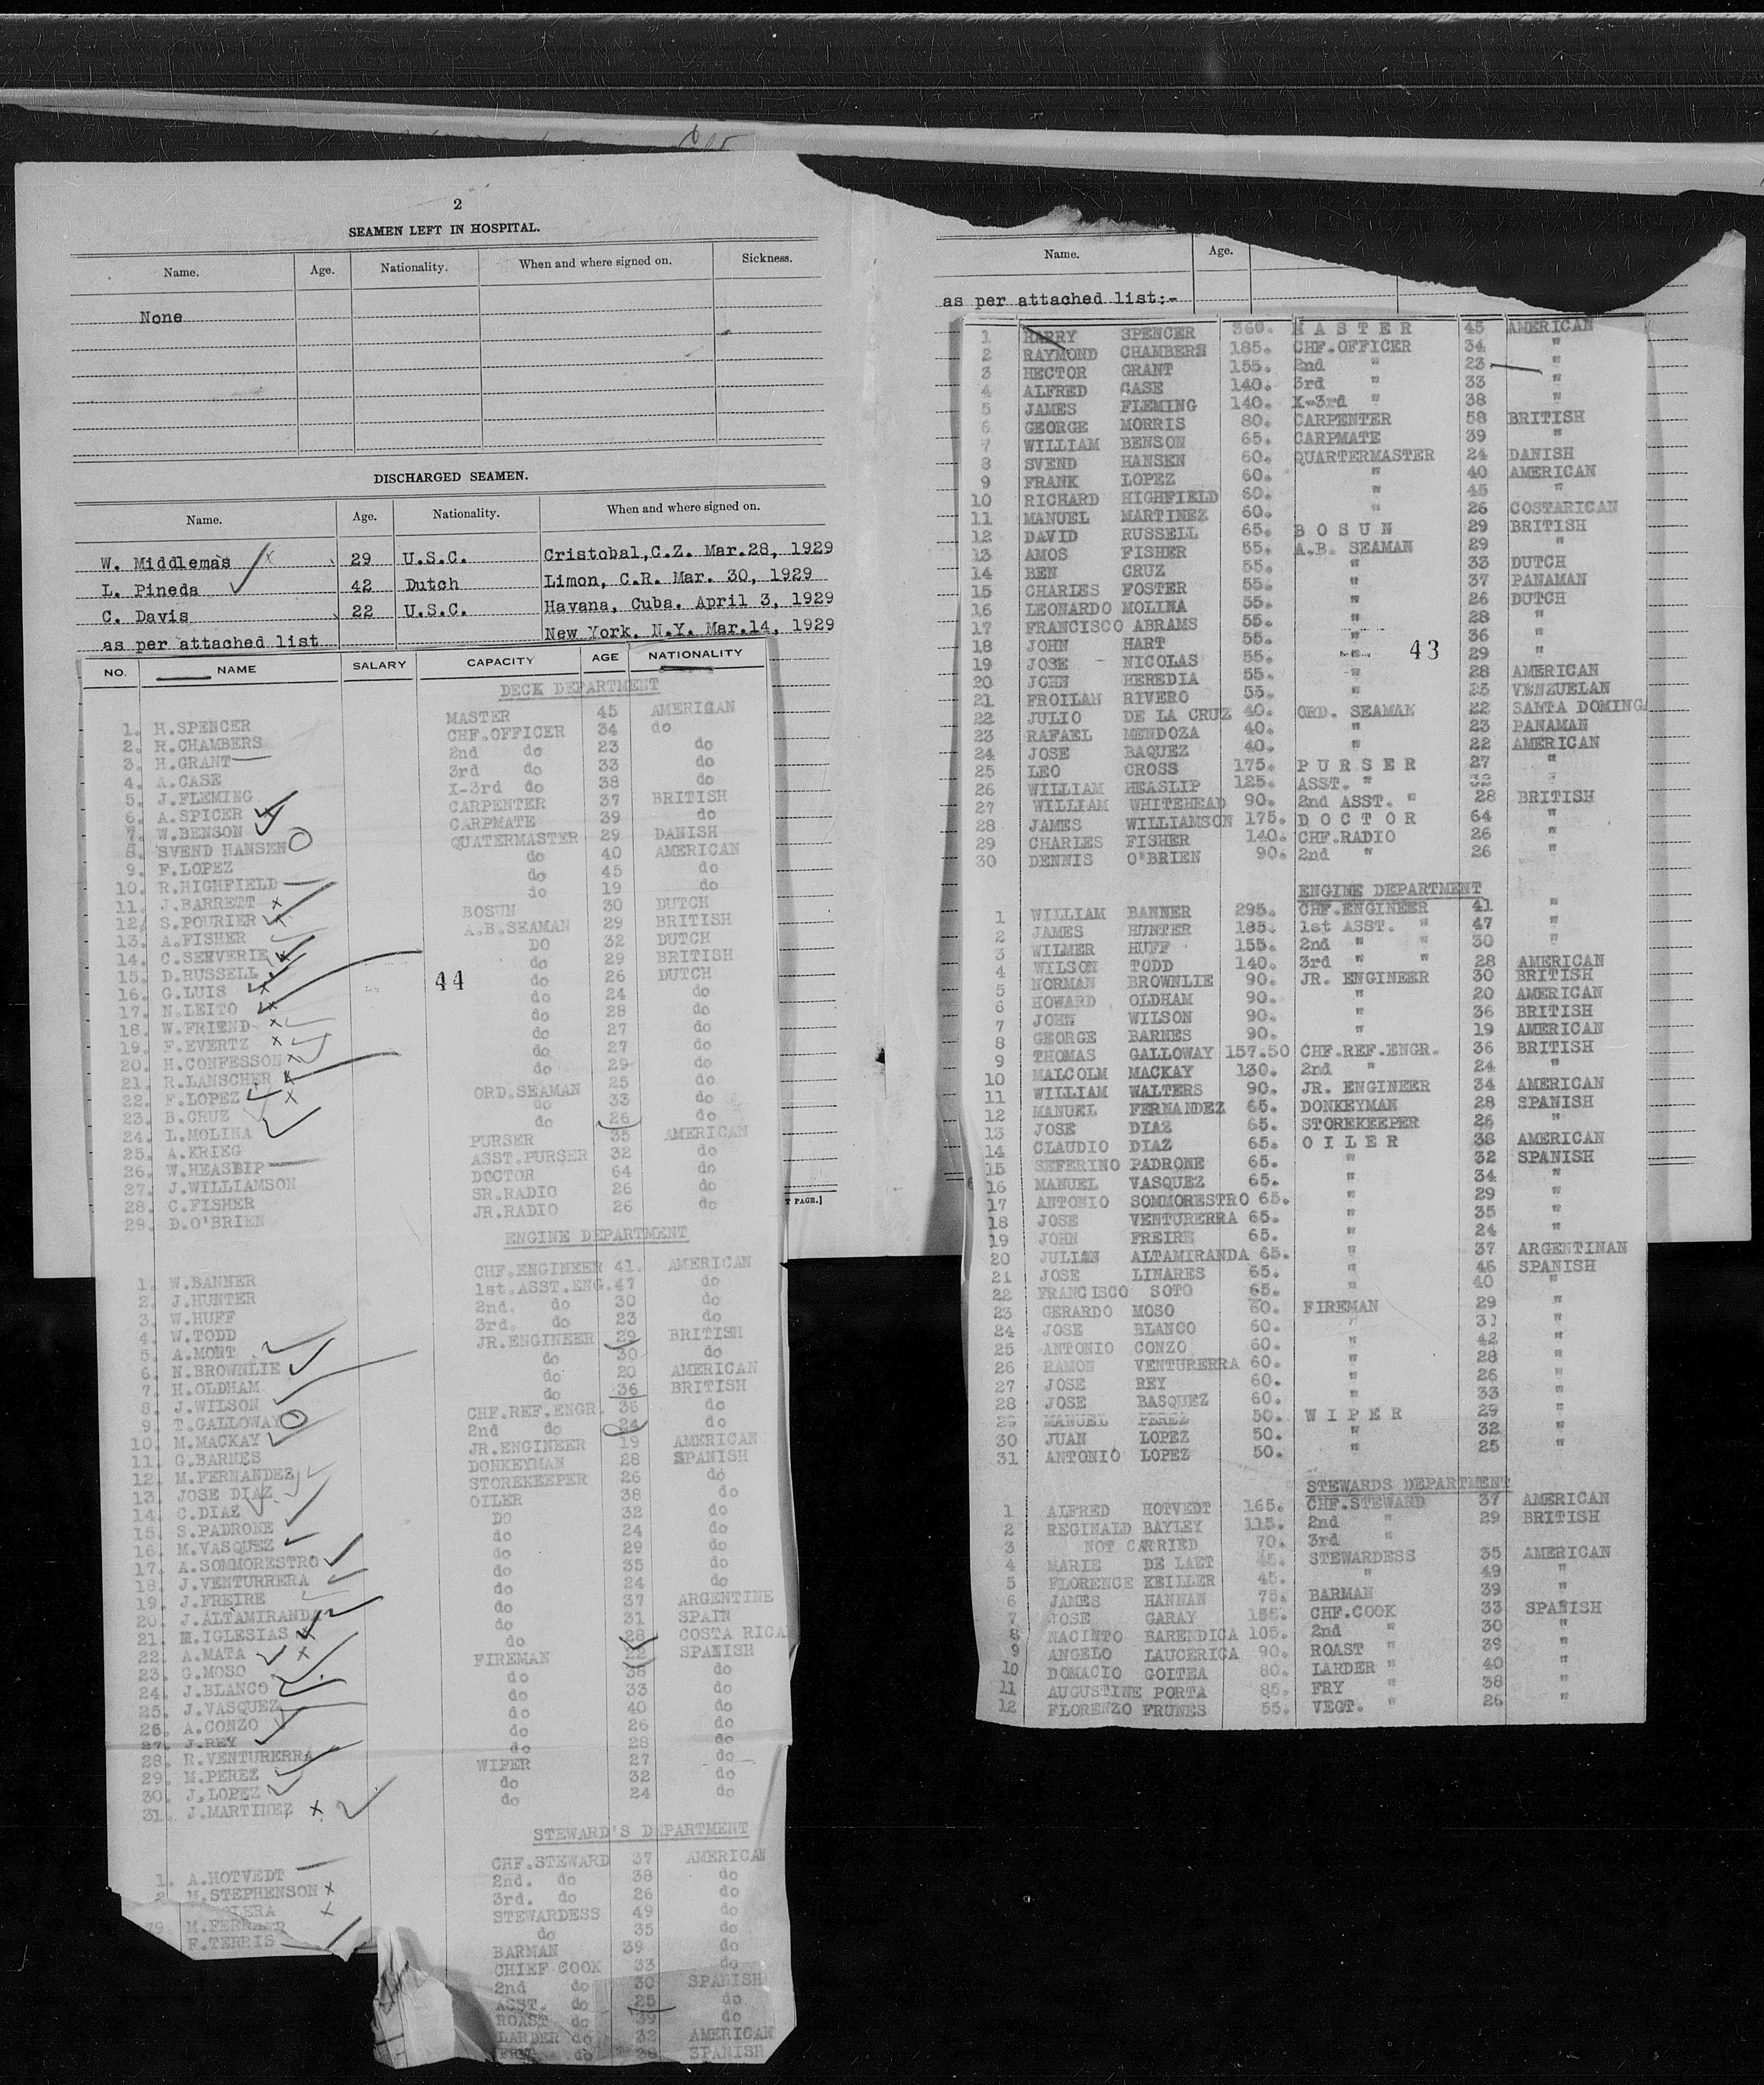 2
SEAMEN LEFT IN HOSPITAL.
Name. Age. Nationality. When and where signed on. Sickness.
None
DISCHARGED SEAMEN.
Name. Age. Nationality. When and where signed on.
W. Middlemas 29 U.S.C. Cristobal,C.Z. Mar.28, 1929
L. Pineda 42 Dutch Limon, C.R. Mar. 30, 1929
C. Davis 22 U.S.C. Havana, Cuba. April 3, 1929
as per attached list New York. N.Y. Mar.14, 1929
NO. NAME SALARY CAPACITY AGE NATIONALITY
DECK DEPARTMENT
1. H.SPENCER MASTER 45 AMERICAN
2. R.CHAMBERS CHF.OFFICER 34 do
3. H.GRANT 2nd do 23 do
4. A.CASE 3rd do 33 do
5. J.FLEMING X-3rd do 38 do
6. A.SPICER CARPENTER 37 BRITISH
7. W.BENSON CARPMATE 39 do
8. SVEND HANSEN QUATERMASTER 29 DANISH
9. F.LOPEZ do 40 AMERICAN
10. R.HIGHFIELD do 45 do
11. J.BARRETT do 19 do
12. S.POURIER BOSUN 30 DUTCH
13. A.FISHER A.B.SEAMAN 29 BRITISH
14. C.SENVERIE DO 32 DUTCH
15. D.RUSSELL do 29 BRITISH
16. G.LUIS do 26 DUTCH
17. N.LEITO do 24 do
18. W.FRIEND do 28 do
19. F.EVERTZ do 27 do
20. H.CONFESSON do 27 do
21. R.LANSCHER do 29 do
22. F.LOPEZ ORD.SEAMAN 25 do
23. B.CRUZ do 33 do
24. L.MOLINA do 26 do
25. A.KRIEG PURSER 35 AMERICAN
26. W.HEASLIP ASST.PURSER 32 do
27. J.WILLIAMSON DOCTOR 64 do
28. C.FISHER SR.RADIO 26 do
29. D.O'BRIEN JR.RADIO 26 do
44
T PAGE.]
ENGINE DEPARTMENT
1. W.BANNER CHF.ENGINEER 41. AMERICAN
2. J.HUNTER 1st.ASST.ENG.47 do
3. W.HUFF 2nd. do 30 do
4. W.TODD 3rd. do 23 do
5. A.MONT JR.ENGINEER 29 BRITISH
6. N.BROWNLIE do 30 do
7. H.OLDHAM do 20 AMERICAN
8. J.WILSON do 36 BRITISH
9. T.GALLOWAY CHF.REF.ENGR. 36 do
10. M.MACKAY 2nd do 24 do
11. G.BARNES JR.ENGINEER 19 AMERICAN
12. M.FERNANDEZ DONKEYMAN 28 SPANISH
13. JOSE DIAZ STOREKEEPER 26 do
14. C.DIAZ OILER 38 do
15. S.PADRONE DO 32 do
16. M.VASQUEZ do 24 do
17. A.SOMMORESTRO do 29 do
18. J.VENTURRERA do 35 do
19. J.FREIRE do 24 do
20. J.ALTAMIRANDA do 37 ARGENTINE
21. M.IGLESIAS do 31 SPAIN
22. A.MATA do 28 COSTA RICA
23. G.MOSO FIREMAN 22 SPANISH
24. J.BLANCO do 38 do
25. J.VASQUEZ do 33 do
26. A.CONZO do 40 do
27. J.REY do 26 do
28. R.VENTURERRA do 28 do
29. M.PEREZ WIPER 27 do
30. J.LOPEZ do 32 do
31. J.MARTINEZ do 24 do
STEWARD'S DEPARTMENT
1. A.HOTVEDT CHF.STEWARD 37 AMERICAN
2 M.STEPHENSON 2nd. do 38 do
3rd. do 26 do
STEWARDESS 49 do
F.TERRIS do 35 do
BARMAN 39 do
CHIEF COOK 33 do
2nd do 30 SPANISH
ASST. do 25 do
ROAST do 39 do
LARDER do 32 AMERICAN
FRY do 38 SPANISH
Name. Age.
as per attached list:-
1 HARRY SPENCER 360. MASTER 45 AMERICAN
2 RAYMOND CHAMBERS 185. CHF.OFFICER 34 "
3 HECTOR GRANT 155. 2nd " 23 "
4 ALFRED CASE 140. 3rd " 33 "
5 JAMES FLEMING 140. X-3rd " 38 "
6 GEORGE MORRIS 80. CARPENTER 58 BRITISH
7 WILLIAM BENSON 65. CARPMATE 39 "
8 SVEND HANSEN 60. QUARTERMASTER 24 DANISH
9 FRANK LOPEZ 60. " 40 AMERICAN
10 RICHARD HIGHFIELD 60. " 45 "
11 MANUEL MARTINEZ 60. " 26 COSTARICAN
12 DAVID RUSSELL 65. BOSUN 29 BRITISH
13 AMOS FISHER 55. A.B. SEAMAN 29 "
14 BEN CRUZ 55. " 33 DUTCH
15 CHARLES FOSTER 55. " 37 PANAMAN
16 LEONARDO MOLINA 55. " 26 DUTCH
17 FRANCISCO ABRAMS 55. " 28 "
18 JOHN HART 55. " 36 "
19 JOSE NICOLAS 55. " 29 "
20 JOHN HEREDIA 55. " 28 AMERICAN
21 FROILAN RIVERO 55. " 25 VENZUELAN
22 JULIO DE LA CRUZ 40. ORD. SEAMAN 22 SANTA DOMINGA
23 RAFAEL MENDOZA 40. " 23 PANAMAN
24 JOSE BAQUEZ 40. " 22 AMERICAN
25 LEO CROSS 175. PURSER 27 "
26 WILLIAM HEASLIP 125. ASST. " 32 "
27 WILLIAM WHITEHEAD 90. 2nd ASST. " 28 BRITISH
28 JAMES WILLIAMSON 175. DOCTOR 64 "
29 CHARLES FISHER 140. CHF.RADIO 26 "
30 DENNIS O'BRIEN 90. 2nd " 26 "
43
ENGINE DEPARTMENT
1 WILLIAM BANNER 295. CHF.ENGINEER 41 "
2 JAMES HUNTER 185. 1st ASST. " 47 "
3 WILMER HUFF 155. 2nd " " 30 "
4 WILSON TODD 140. 3rd " " 28 AMERICAN
5 NORMAN BROWNLIE 90. JR. ENGINEER 30 BRITISH
6 HOWARD OLDHAM 90. " 20 AMERICAN
7 JOHN WILSON 90. " 36 BRITISH
8 GEORGE BARNES 90. " 19 AMERICAN
9 THOMAS GALLOWAY 157.50 CHF.REF.ENGR. 36 BRITISH
10 MALCOLM MACKAY 130. 2nd " 24 "
11 WILLIAM WALTERS 90. JR. ENGINEER 34 AMERICAN
12 MANUEL FERNANDEZ 65. DONKEYMAN 28 SPANISH
13 JOSE DIAZ 65. STOREKEEPER 26 "
14 CLAUDIO DIAZ 65. OILER 38 AMERICAN
15 SEFERINO PADRONE 65. " 32 SPANISH
16 MANUEL VASQUEZ 65. " 34 "
17 ANTONIO SOMMORESTRO 65. " 29 "
18 JOSE VENTURERRA 65. " 35 "
19 JOHN FREIRE 65. " 24 "
20 JULIAN ALTAMIRANDA 65. " 37 ARGENTINAN
21 JOSE LINARES 65. " 46 SPANISH
22 FRANCISCO SOTO 65. " 40 "
23 GERARDO MOSO 60. FIREMAN 29 "
24 JOSE BLANCO 60. " 31 "
25 ANTONIO CONZO 60. " 42 "
26 RAMON VENTURERRA 60. " 28 "
27 JOSE REY 60. " 26 "
28 JOSE BASQUEZ 60. " 33 "
29 MANUEL PEREZ 50. WIPER 29 "
30 JUAN LOPEZ 50. " 32 "
31 ANTONIO LOPEZ 50. " 25 "
STEWARDS DEPARTMENT
1 ALFRED HOTVEDT 165. CHF.STEWARD 37 AMERICAN
2 REGINALD BAYLEY 115. 2nd " 29 BRITISH
3 NOT CARRIED 70. 3rd "
4 MARIE DE LAET 45. STEWARDESS 35 AMERICAN
5 FLORENCE KEILLER 45. " 49 "
6 JAMES HANNAN 75. BARMAN 39 "
7 JOSE GARAY 155. CHF.COOK 33 SPANISH
8 NACINTO BARENDICA 105. 2nd " 30 "
9 ANGELO LAUCERICA 90. ROAST " 39 "
10 DOMACIO GOITEA 80. LARDER " 40 "
11 AUGUSTINE PORTA 85. FRY " 38 "
12 FLORENZO FRUNES 55. VEGT. " 26 "